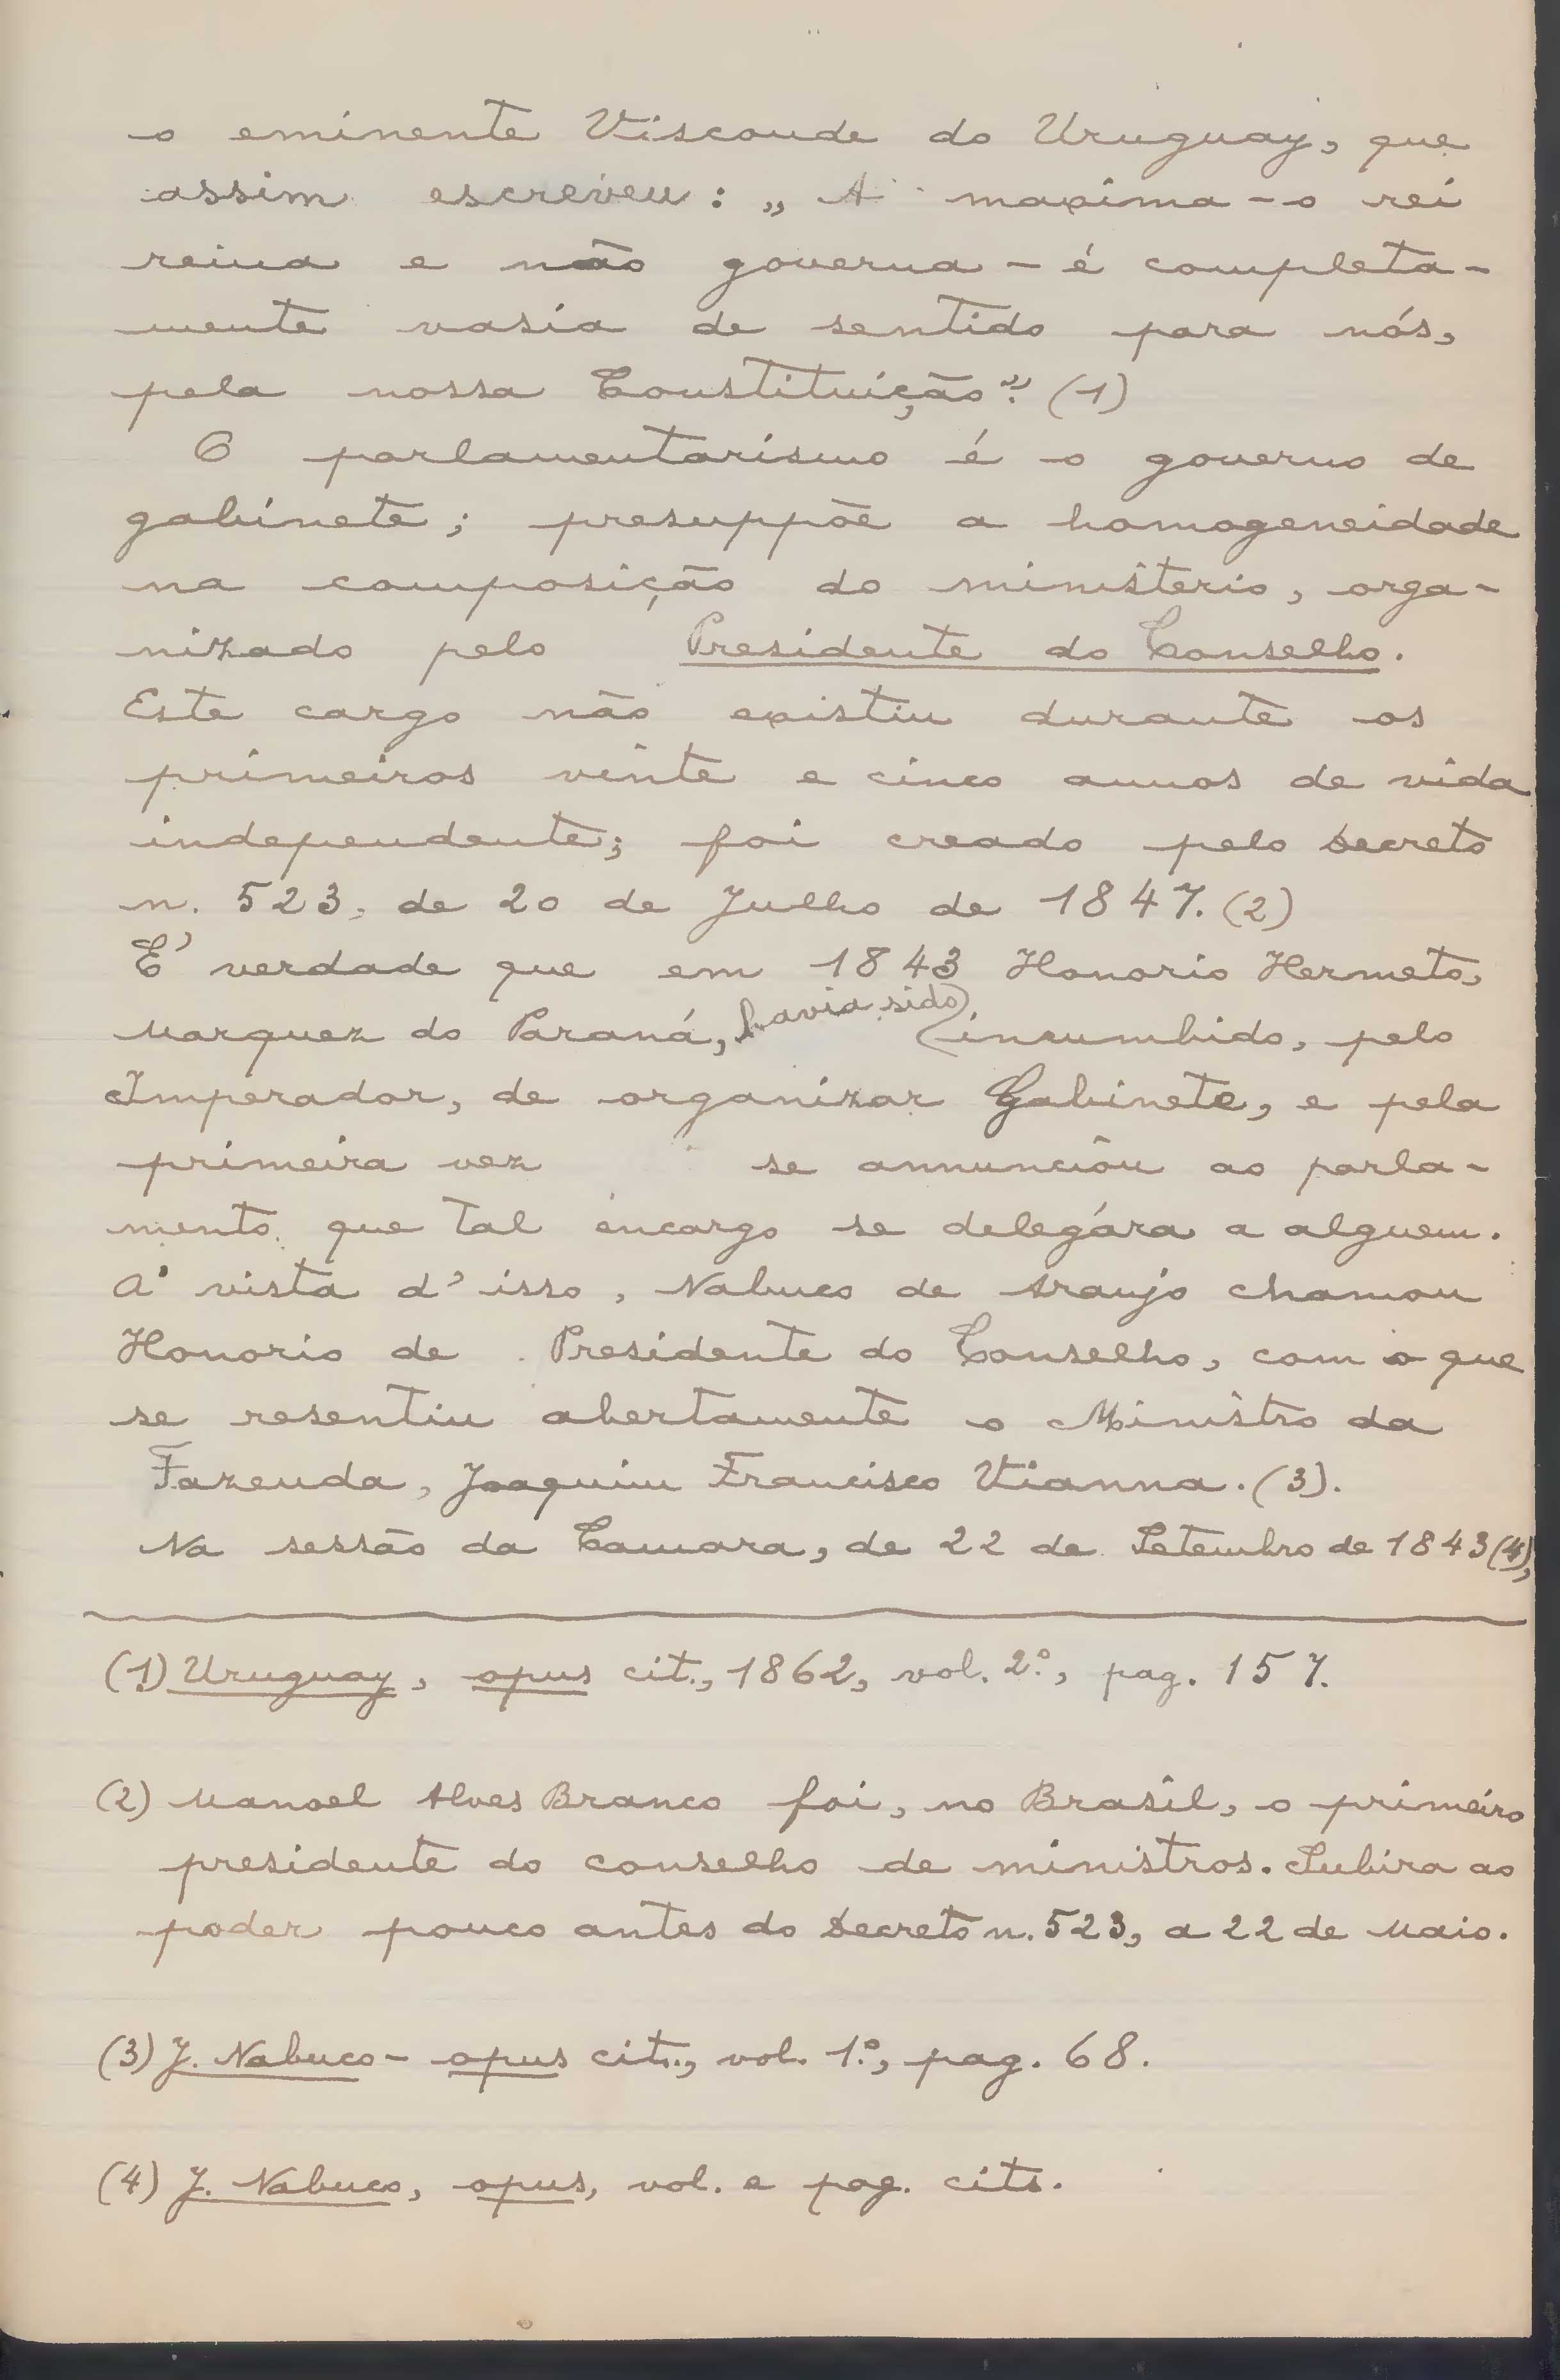 o eminente Visconde do Uruguay, que
assim escreveu: „ A maxima - o rei
reina e não governa - é completa-
mente vasia de sentido para nós,
pela nossa Constituição”. (1)
O parlamentarismo é o governo de
gabinete; presuppõe a homogeneidade
na composição do ministerio, orga-
nizado pelo Presidente do Conselho.
Este cargo não existiu durante os
primeiros vinte e cinco annos de vida
independente; foi creado pelo Decreto
n. 523, de 20 de Julho de 1847. (2)
E' verdade que em 1843 Honorio Hermeto,
Marquez do Paraná, havia sido incumbido, pelo
Imperador, de organizar Gabinete, e pela
primeira vez se annunciou ao parla-
mento que tal encargo se delegára a alguem.
A' vista d'isso, Nabuco de Araujo chamou
Honorio de Presidente do Conselho, com o que
se resentiu abertamente o Ministro da
Fazenda, Joaquim Francisco Vianna. (3).
Na sessão da Camara, de 22 de Setembro de 1843 (4),
(1) Uruguay, opus cit., 1862, vol. 2.º, pag. 157.
(2) Manoel Alves Branco foi, no Brasil, o primeiro
presidente do conselho de ministros. Subira ao
poder pouco antes do Decreto n. 523, a 22 de Maio.
(3) J. Nabuco - opus cit., vol. 1.º, pag. 68.
(4) J. Nabuco, opus, vol. e pag. cits.